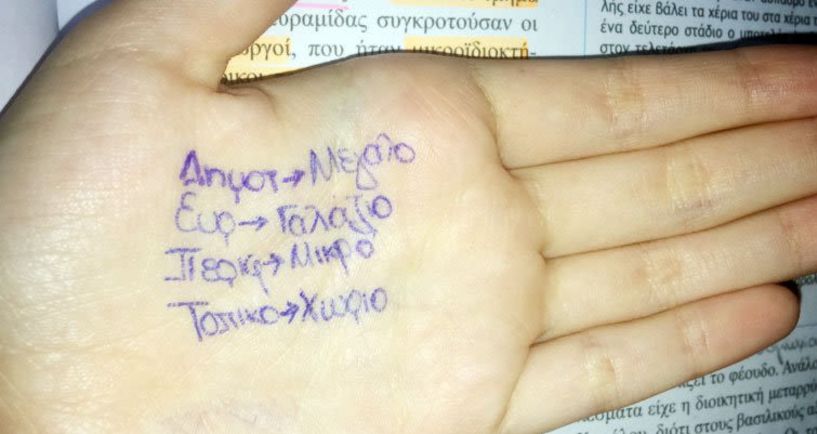 τμήμα
υραμίδας συγκροτούσαν οι
ωργοί, που ήταν μικροϊδιοκτή-
λής είχε βάλει τα χέρια του στα χέρια τ
ένα δεύτερο στάδιο ο
στον
Δημοτ→Μεγάλο
Ευρ→Γαλάζιο
Περιφ→Μικρό
Τοπικο→Χωριο
ζει το φέουδο. Ανάλο
εσματα είχε η διοικητική μεταρρύ
διότι στους βασιλικούς